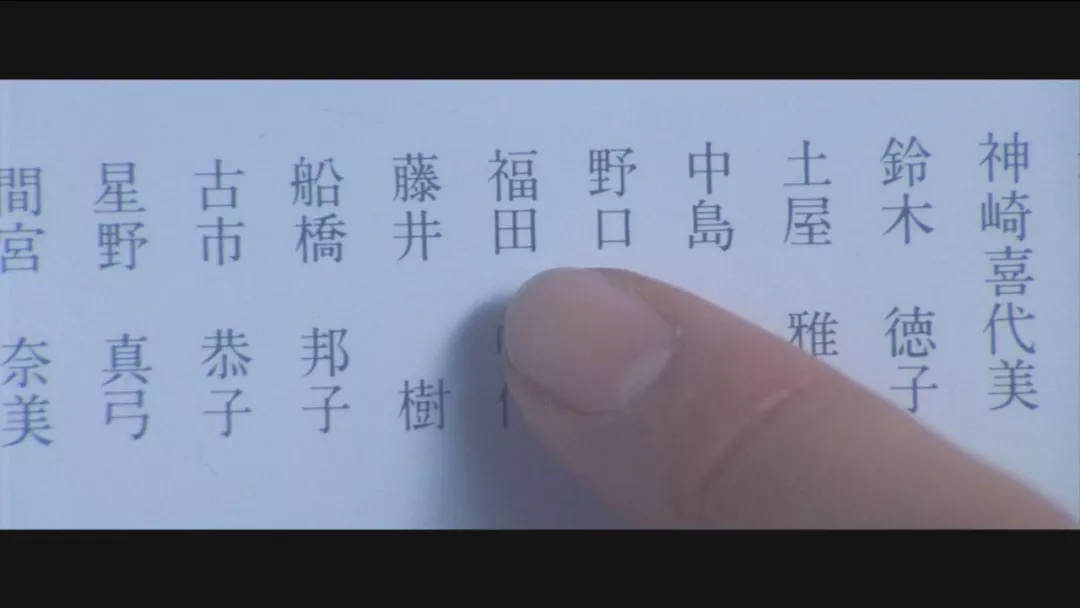 神崎喜代美
鈴木 徳子
土屋 雅
中島
野口
福田
藤井 樹
船橋 邦子
古市 恭子
星野 真弓
間宮 奈美